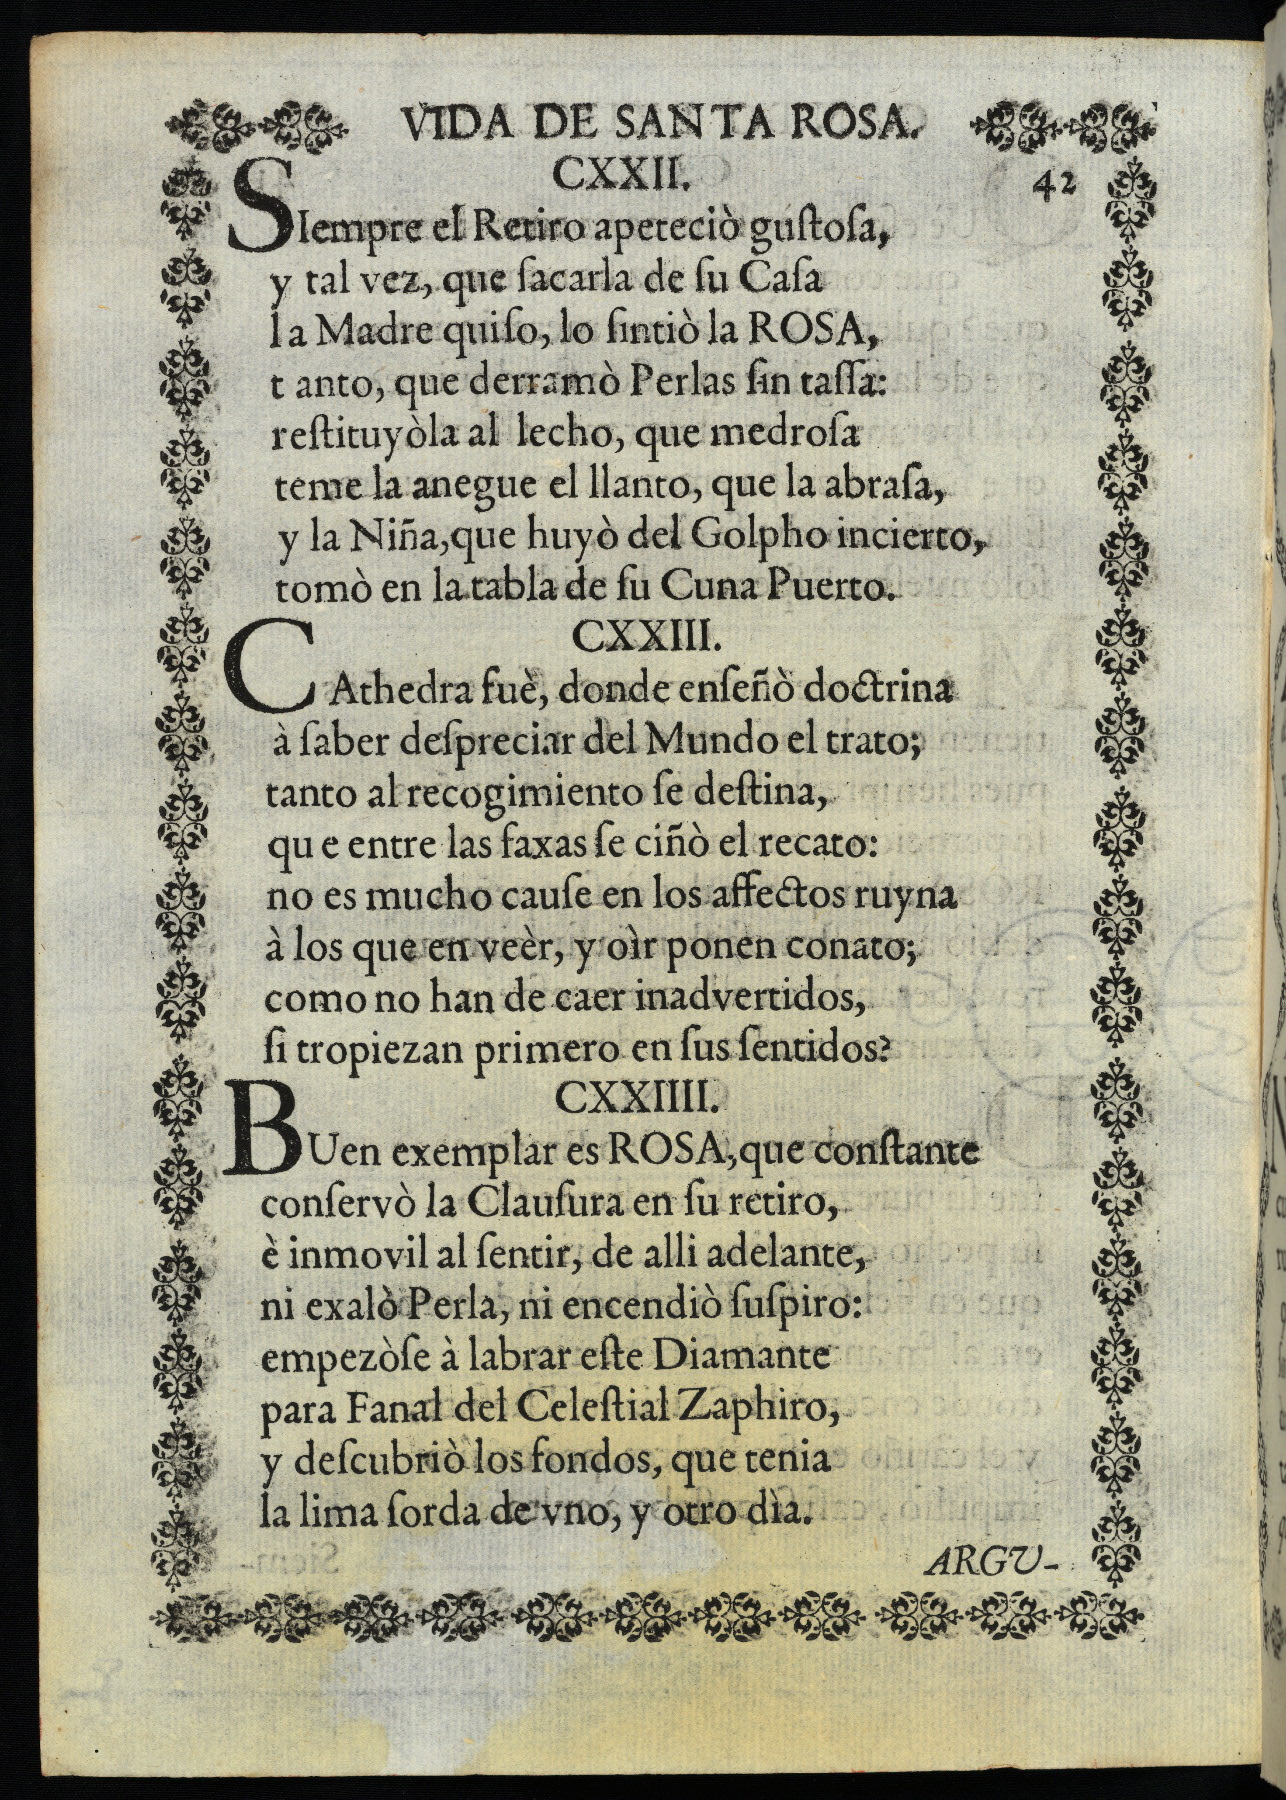 VIDA DE SANTA ROSA.
CXXII.
42
SIempre el Retiro apeteciò guſtoſa,
y tal vez, que ſacarla de ſu Caſa
la Madre quiſo, lo ſintiò la ROSA,
t anto, que derramò Perlas ſin taſſa:
reſtituyòla al lecho, que medroſa
teme la anegue el llanto, que la abraſa,
y la Niña, que huyò del Golpho incierto,
tomò en la tabla de ſu Cuna Puerto.
CXXIII.
CAthedra fuè, donde enſeñò doctrina
à ſaber deſpreciar del Mundo el trato;
tanto al recogimiento ſe deſtina,
qu e entre las faxas ſe ciñò el recato:
no es mucho cauſe en los affectos ruyna
à los que en veèr, y oìr ponen conato;
como no han de caer inadvertidos,
ſi tropiezan primero en ſus ſentidos?
CXXIIII.
BUen exemplar es ROSA, que conſtante
conſervò la Clauſura en ſu retiro,
è inmovil al ſentir, de alli adelante,
ni exalò Perla, ni encendiò ſuſpiro:
empezòſe à labrar eſte Diamante
para Fanal del Celeſtial Zaphiro,
y deſcubriò los fondos, que tenia
la lima ſorda de vno, y otro dìa.
ARGU-